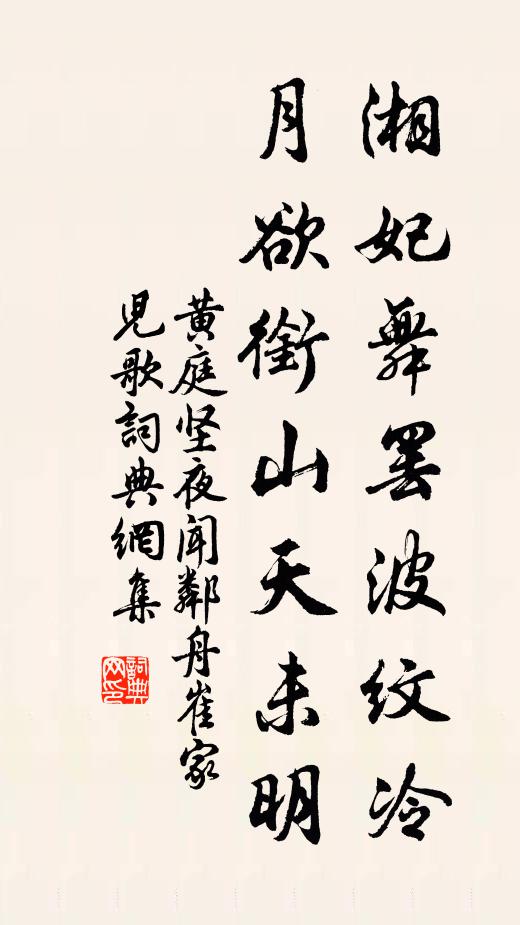 湘妃舞罢波纹冷
月欲銜山天未明
黄庭坚夜闻鄰舟崔家
児歌詞典網集
詞典网印